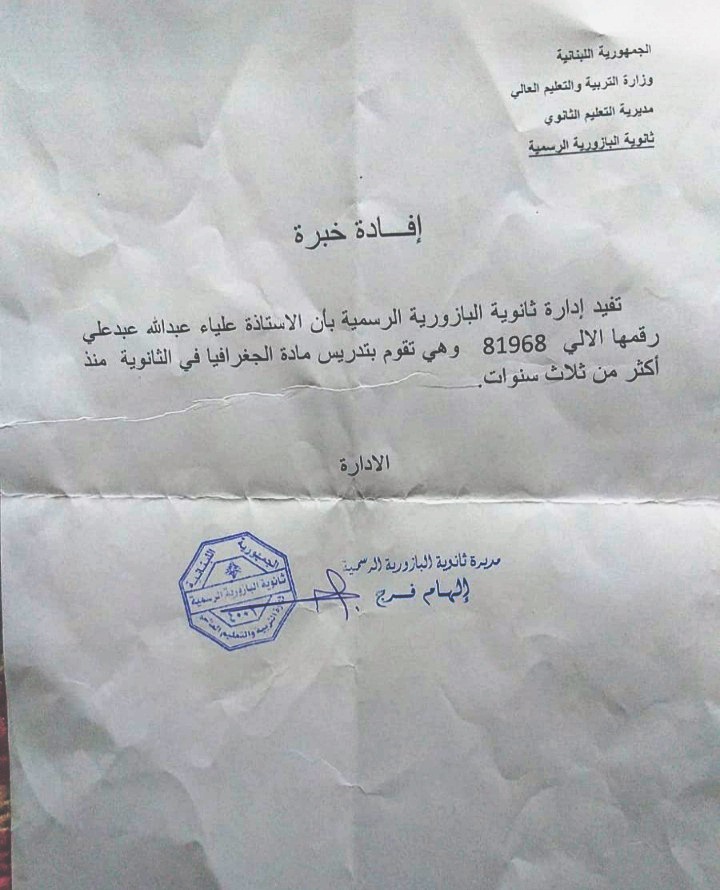 الجمهورية اللبنانية
وزارة التربية والتعليم العالي
مديرية التعليم الثانوي
ثانوية البازورية الرسمية
إفـــادة خبرة
تفيد إدارة ثانوية البازورية الرسمية بأن الاستاذة علياء عبدالله عبدعلي
رقمها الالي 81968 وهي تقوم بتدريس مادة الجغرافيا في الثانوية منذ
أكثر من ثلاث سنوات.
الادارة
مديرة ثانوية البازورية الرسمية
إلهام فرج
الجمهورية اللبنانية
ثانوية البازورية الرسمية
وزارة التربية والتعليم العالي